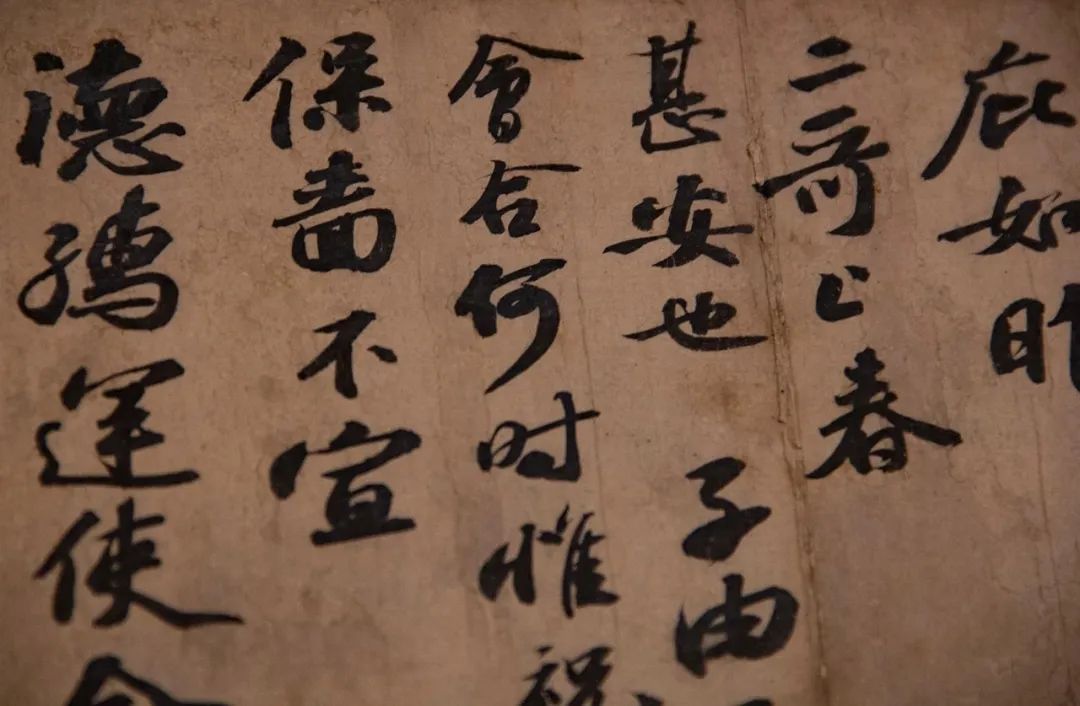 庇如昨
二哥上春
甚安也 子由
會合何时惟祝
保啬不宣
德孺運使